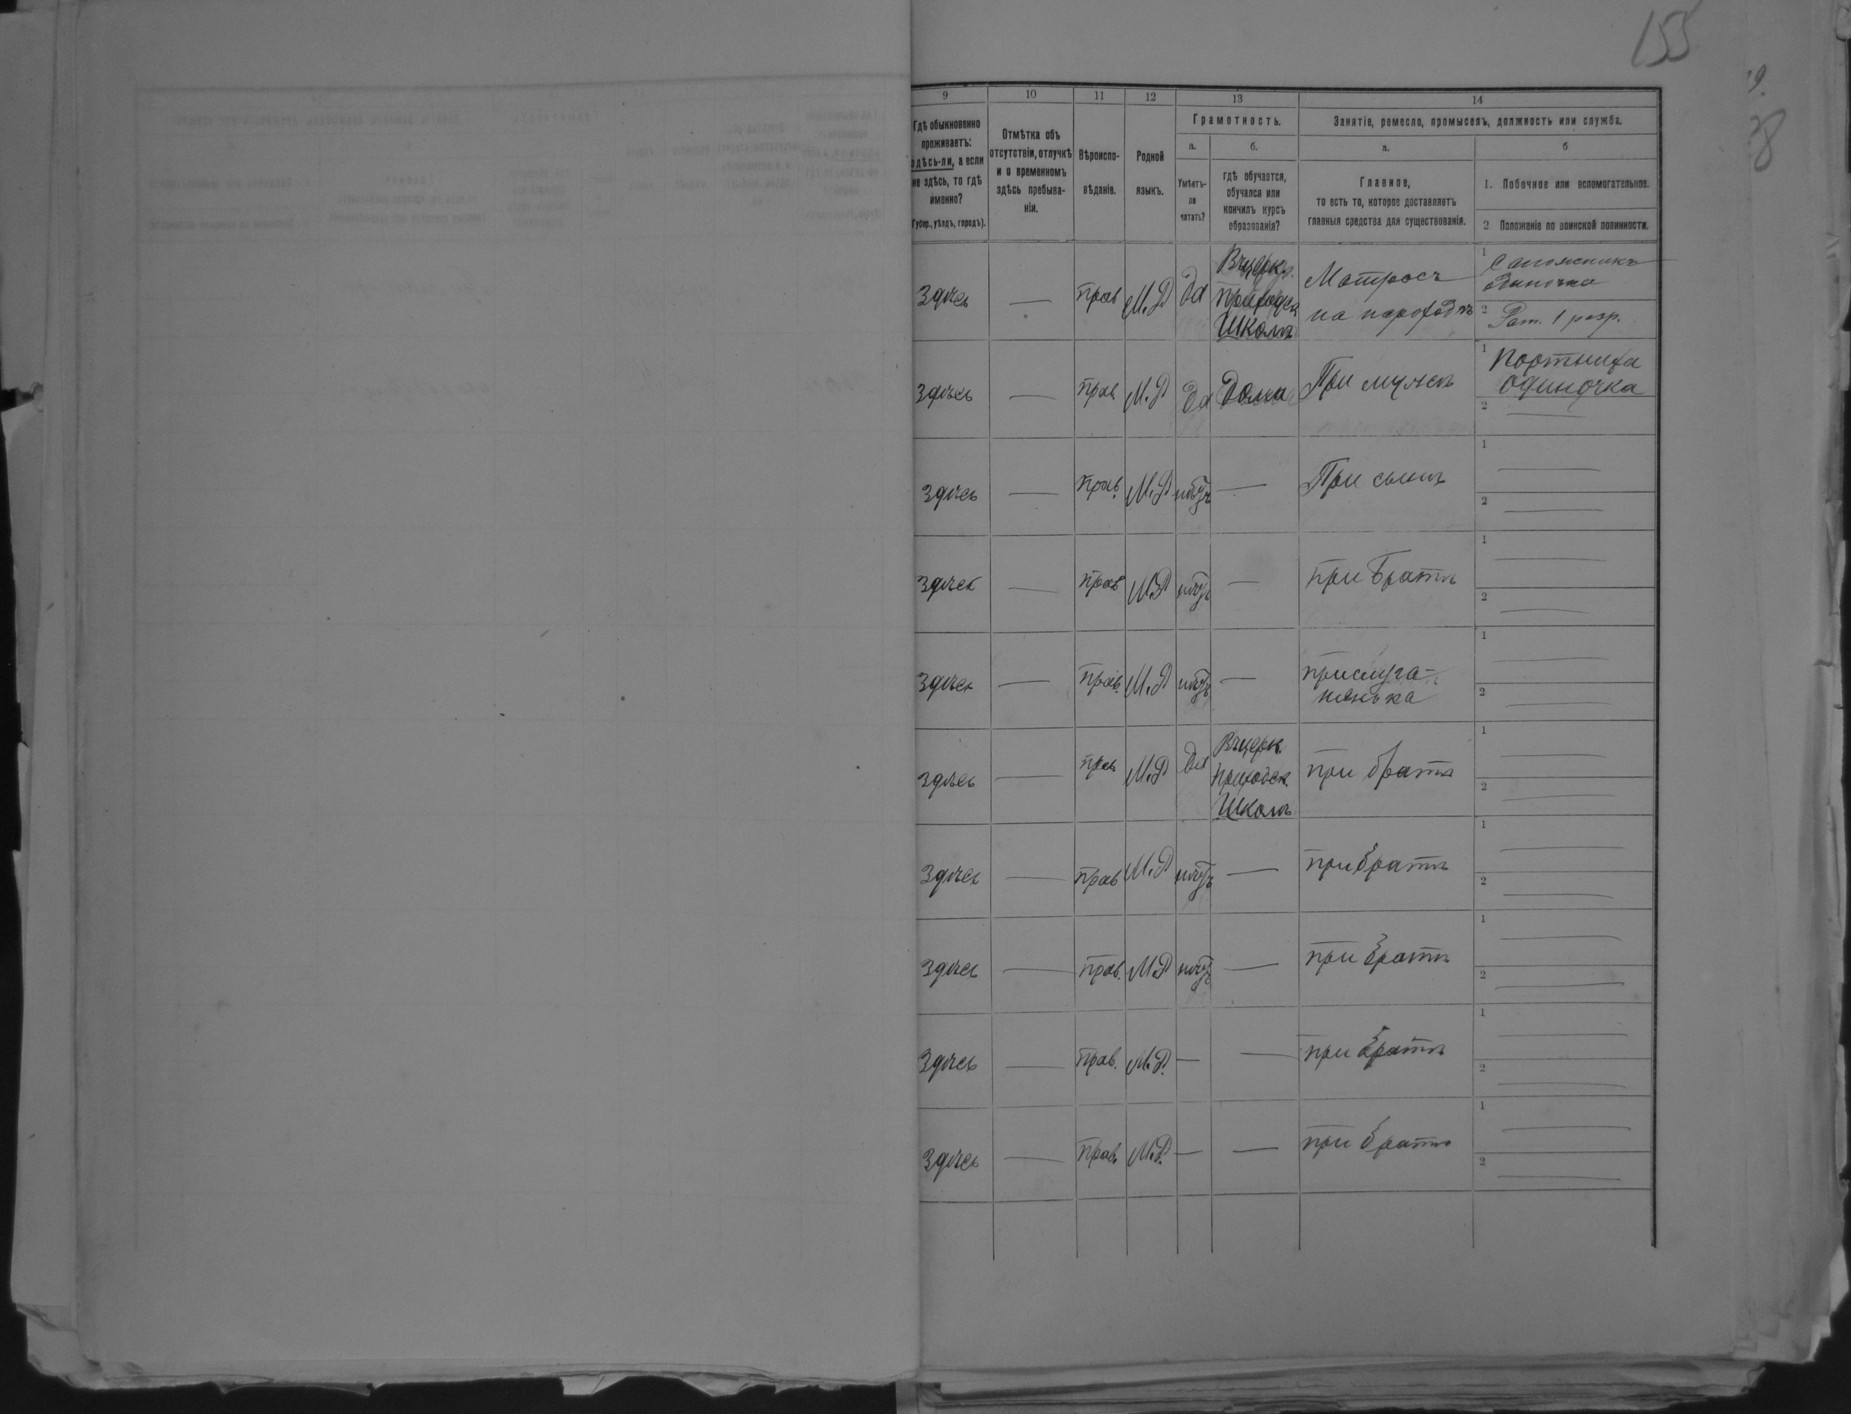 155
9 10 11 12 13 14
Гдѣ обыкновенно
проживаетъ:
здѣсь-ли, а если
не здѣсь, то гдѣ
именно?
(Губер., уѣздъ, городъ).
Отмѣтка объ
отсутствіи, отлучкѣ
и о временномъ
здѣсь пребыва-
ніи.
Вѣроиспо-
вѣданіе.
Родной
языкъ.
Грамотность.
а.
Умѣетъ-
ли
читать?
б.
гдѣ обучается,
обучался или
кончилъ курсъ
образованія?
Занятіе, ремесло, промыселъ, должность или служба.
а.
Главное,
то есть то, которое доставляетъ
главныя средства для существованія.
б
1. Побочное или вспомогательное.
2 Положеніе по воинской повинности.
Здѣсь — прав М.Я да
Вцерк.
приходск
Школѣ
Матросъ
на пароходѣ
1 Сапожникъ
одиночка
2 Рат. 1 разр.
Здѣсь — прав М.Я да Дома При мужѣ
1 Портниха
одиночка
2 —
Здѣсь — прав. М.Я нѣтъ — При сынѣ
1 —
2 —
Здѣсь — прав М.Я нѣтъ — при братѣ
1 —
2 —
Здѣсь — прав. М.Я нѣтъ —
прислуга-
нянька
1 —
2 —
Здѣсь — прав М.Я да
Вцерк.
приходск.
Школѣ
при братѣ
1 —
2 —
Здѣсь — прав М.Я нѣтъ — при братѣ
1 —
2 —
Здѣсь — прав. М.Я нѣтъ — при братѣ
1 —
2 —
Здѣсь — прав. М.Я. — — при братѣ
1 —
2 —
Здѣсь — прав. М.Я. — — при братѣ
1 —
2 —